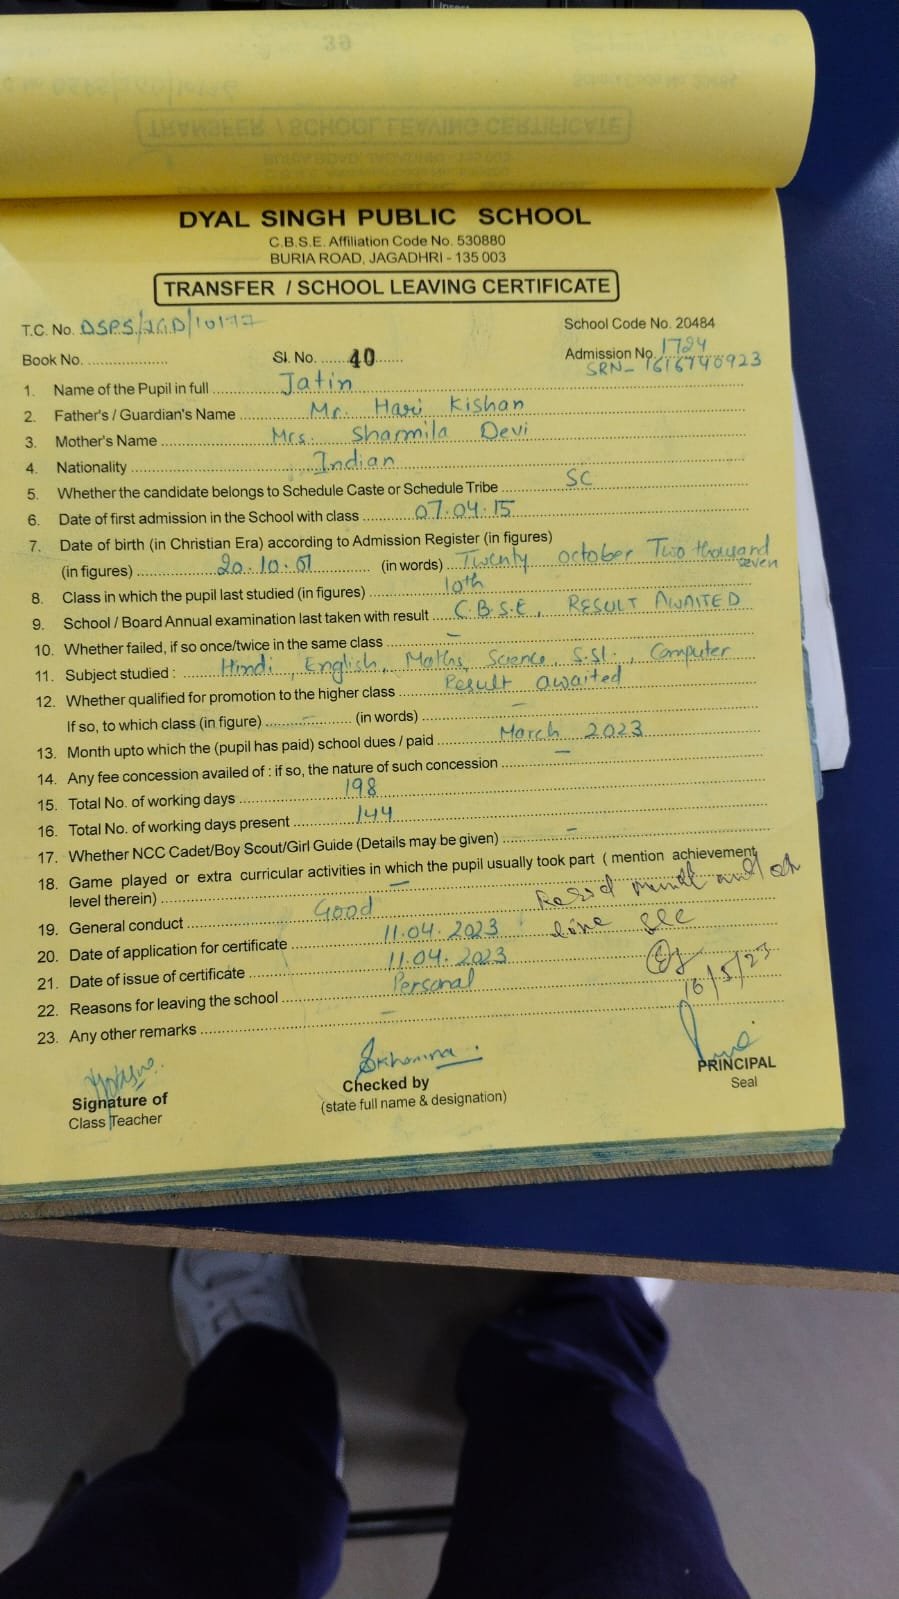 DYAL SINGH PUBLIC SCHOOL
C.B.S.E. Affiliation Code No. 530880
BURIA ROAD, JAGADHRI - 135 003
TRANSFER / SCHOOL LEAVING CERTIFICATE
T.C. No. DSPS/JGD/10177 School Code No. 20484
Book No. .................... Sl. No. ...... 40 ...... Admission No. 1724
SRN- 1616740923
1. Name of the Pupil in full Jatin
2. Father's / Guardian's Name Mr. Hari Kishan
3. Mother's Name Mrs. Sharmila Devi
4. Nationality Indian
5. Whether the candidate belongs to Schedule Caste or Schedule Tribe SC
6. Date of first admission in the School with class 07.04.15
7. Date of birth (in Christian Era) according to Admission Register (in figures)
(in figures) 20.10.07 (in words) Twenty october Two thousand seven
8. Class in which the pupil last studied (in figures) 10th
9. School / Board Annual examination last taken with result C.B.S.E, RESULT AWAITED
10. Whether failed, if so once/twice in the same class –
11. Subject studied : Hindi, English, Maths, Science, S.St., Computer
12. Whether qualified for promotion to the higher class Result awaited
If so, to which class (in figure) – (in words) –
13. Month upto which the (pupil has paid) school dues / paid March 2023
14. Any fee concession availed of : if so, the nature of such concession –
15. Total No. of working days 198
16. Total No. of working days present 144
17. Whether NCC Cadet/Boy Scout/Girl Guide (Details may be given) –
18. Game played or extra curricular activities in which the pupil usually took part ( mention achievement
level therein) –
19. General conduct Good
20. Date of application for certificate 11.04.2023
21. Date of issue of certificate 11.04.2023
22. Reasons for leaving the school Personal
23. Any other remarks –
16/5/23
Signature of
Class Teacher
Checked by
(state full name & designation)
PRINCIPAL
Seal